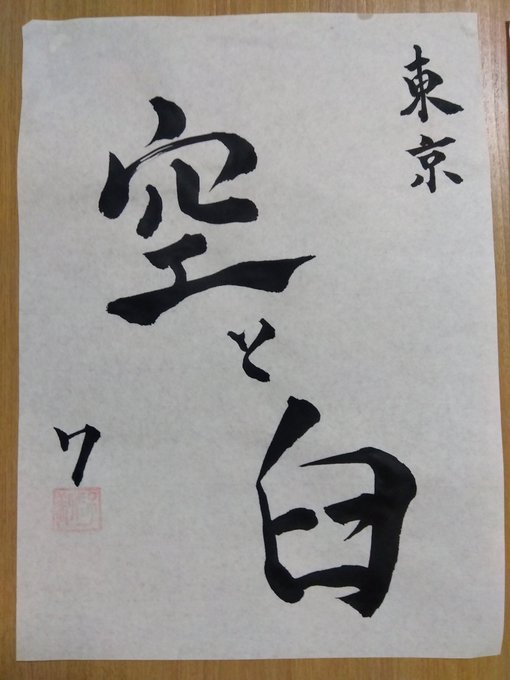 東京
空と臼
ワ